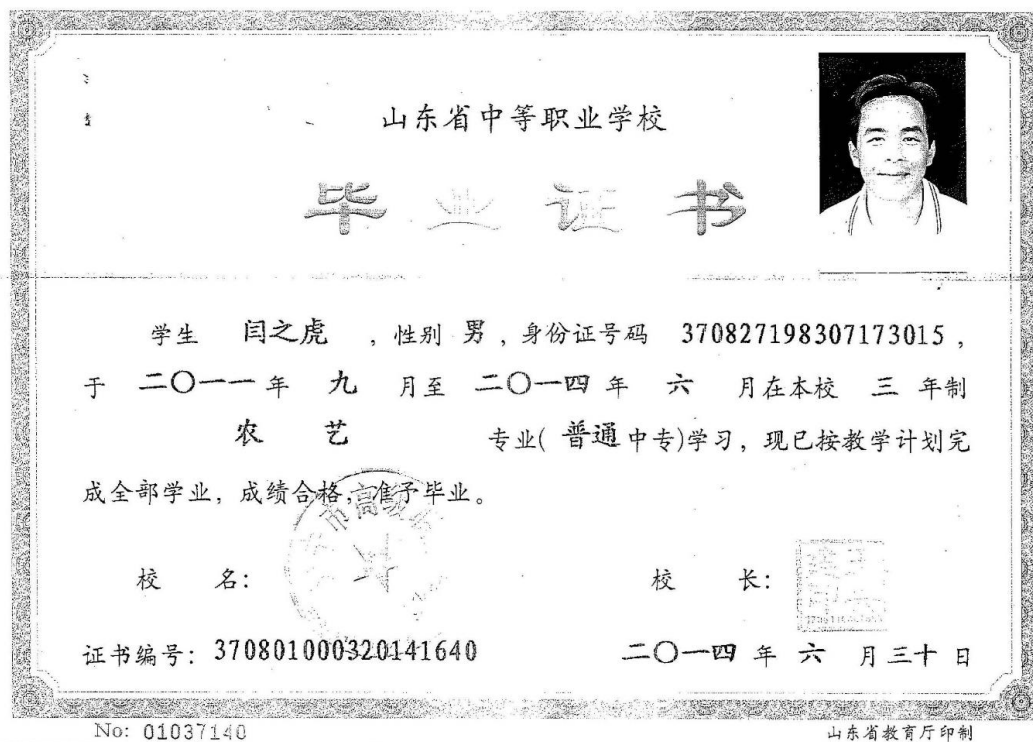 山东省中等职业学校
毕业证书
学生 闫之虎 ,性别 男 ,身份证号码 370827198307173015 ,
于 二〇一一 年 九 月至 二〇一四 年 六 月在本校 三 年制
农 艺 专业( 普通 中专)学习, 现已按教学计划完
成全部学业, 成绩合格, 准予毕业。
市高级
校 名: 校 长:
证书编号: 370801000320141640 二〇一四 年 六 月 三十 日
No: 01037140 山东省教育厅印制